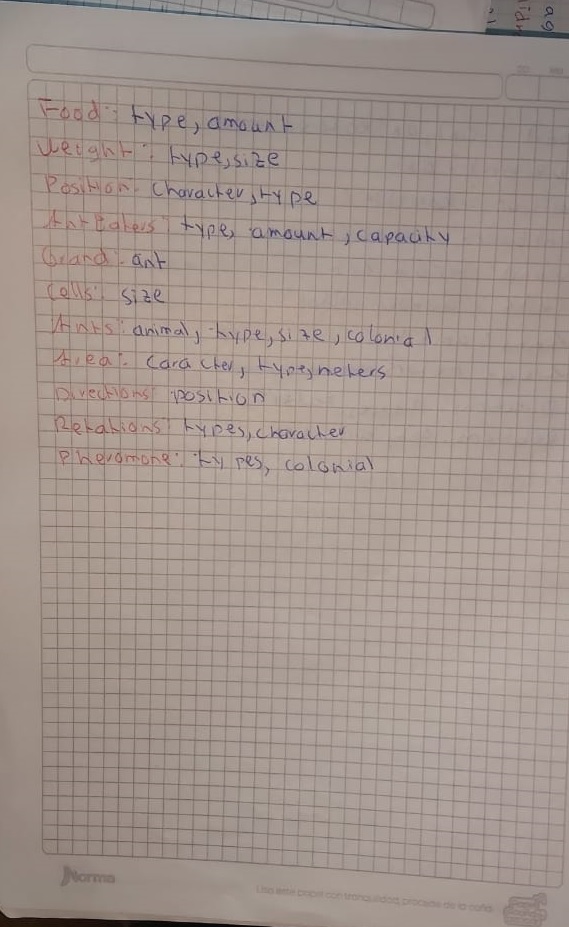 ag
idr
Food: type, amount
Weight: type, size
Position: Character, type
Ant Eaters: type, amount, capacity
Gland: ant
Cells: size
Ants: animal, type, size, colonial
Area: Caracter, type, meters
Directions: position
Rotations: types, character
Pheromone: types, colonial
Norma
Usa este papel con tranquilidad, procede de la caña